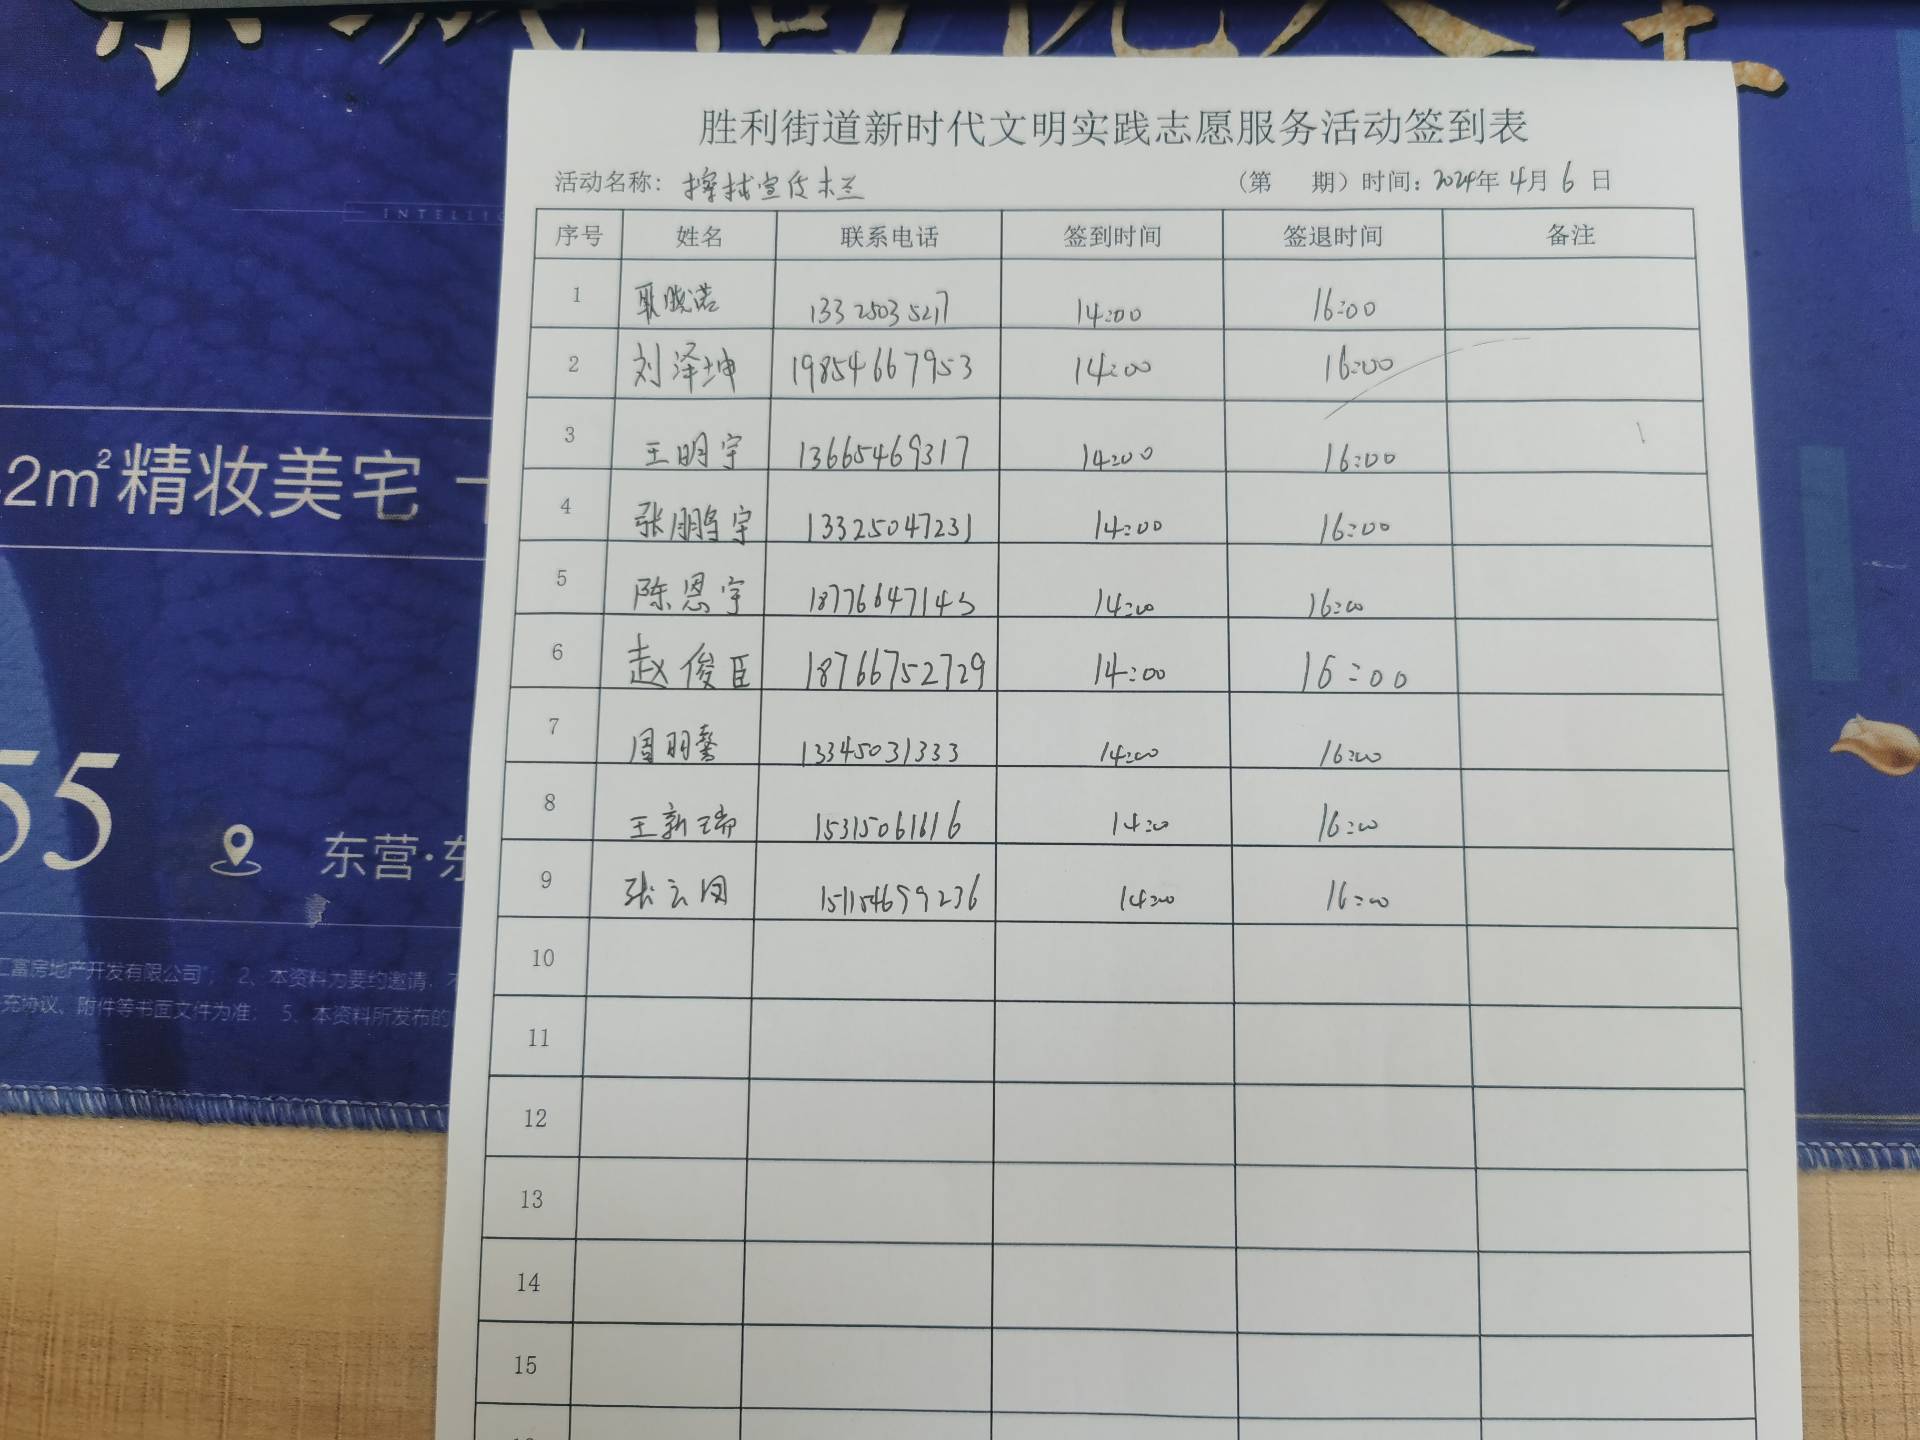 胜利街道新时代文明实践志愿服务活动签到表
活动名称：擦拭宣传栏 （第 期）时间：2024年4月6日
序号 姓名 联系电话 签到时间 签退时间 备注
1 耿晓诺 13325035217 14:00 16:00
2 刘泽坤 19854667953 14:00 16:00
3 王明宇 13665469317 14:00 16:00
4 张鹏宇 13325047231 14:00 16:00
5 陈恩宇 18776647145 14:00 16:00
6 赵俊臣 18766752729 14:00 16:00
7 周明馨 13345031333 14:00 16:00
8 王新瑞 15315061616 14:00 16:00
9 张云 151154699236 14:00 16:00
10
11
12
13
14
15
INTELLIG
2m²精妆美宅
55
东营·东
汇富房地产开发有限公司”； 2、本资料为要约邀请，
充协议、附件等书面文件为准； 5、本资料所发布的